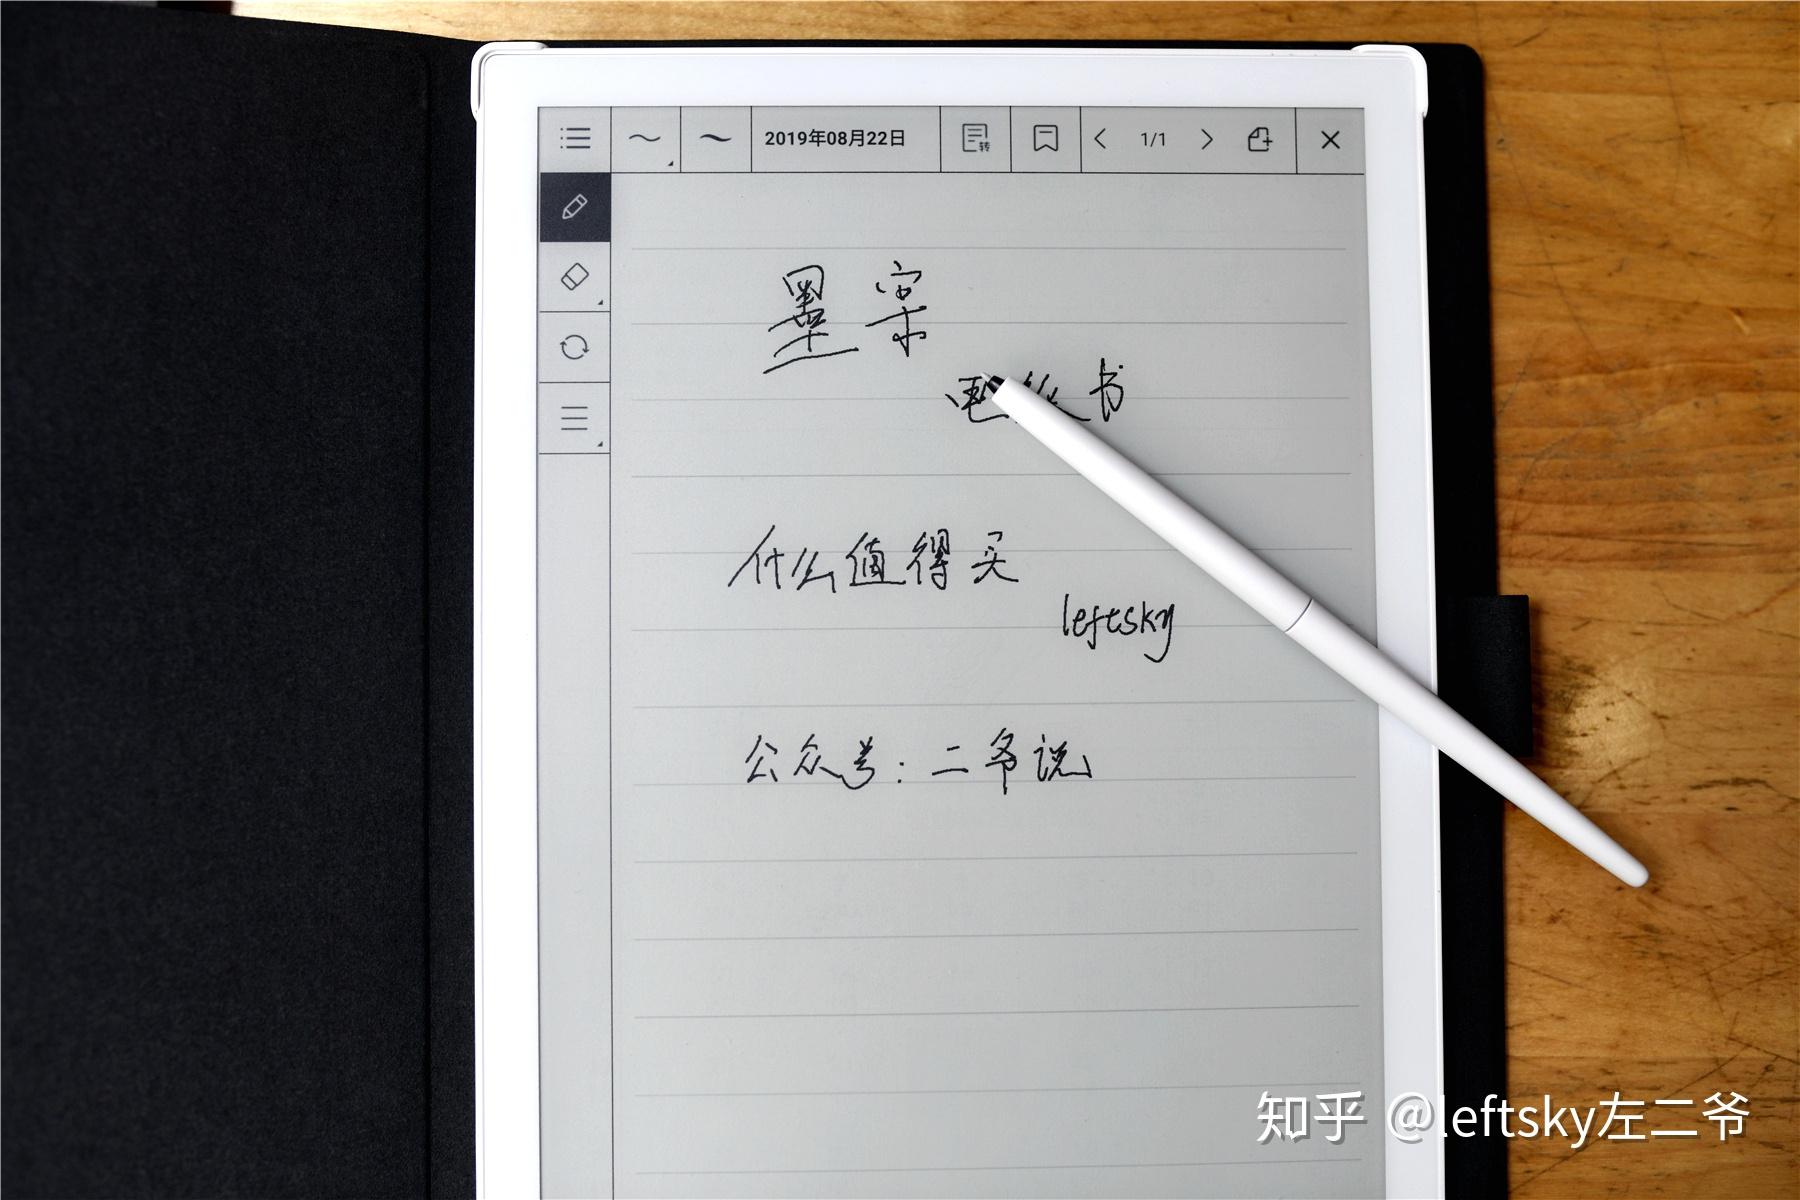 2019年08月22日
转
1/1
墨案
电纸书
什么值得买
leftsky
公众号：二爷说
知乎 @leftsky左二爷